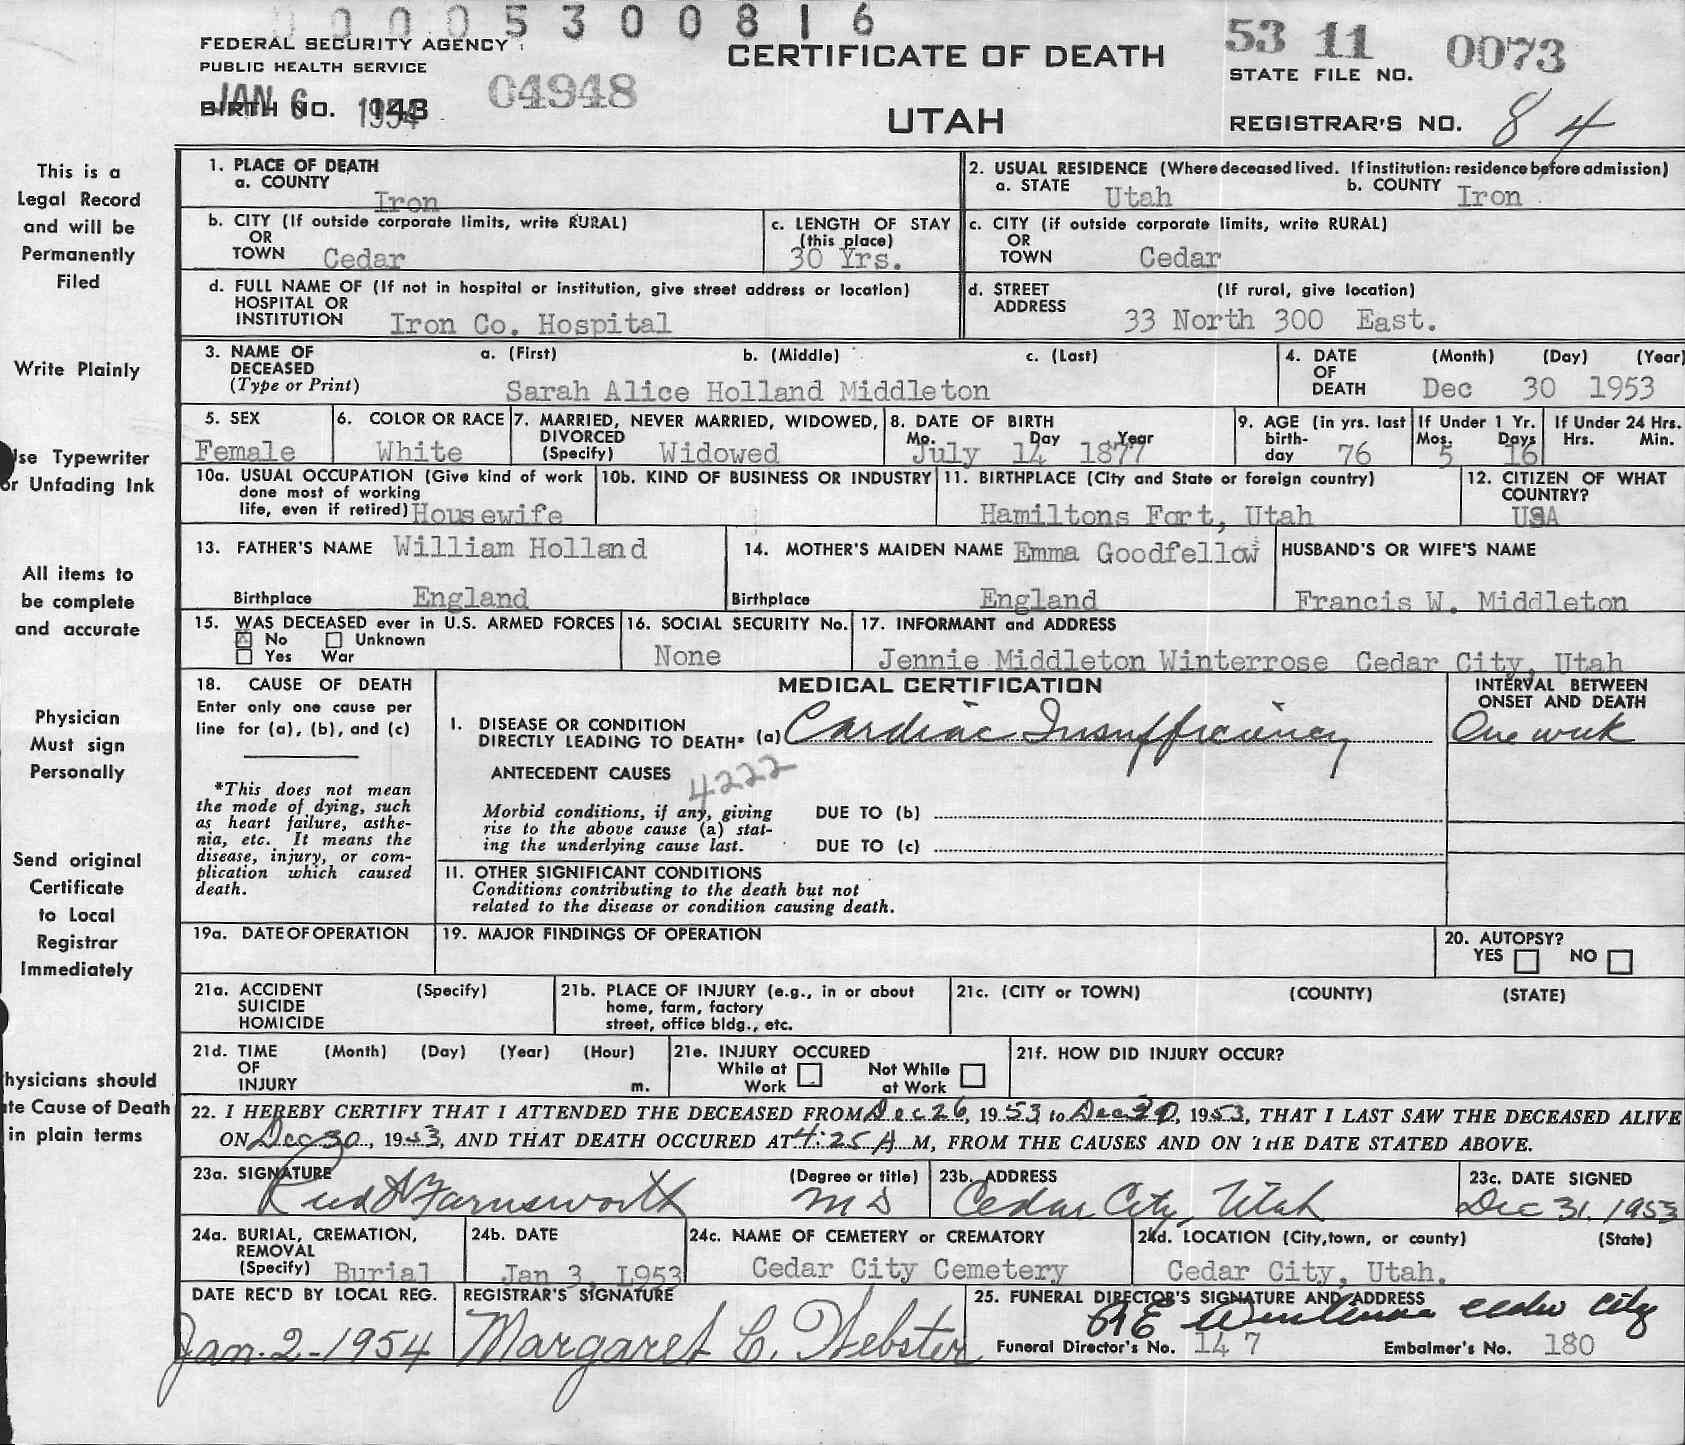 0 0 0 5 3 0 0 8 1 6
FEDERAL SECURITY AGENCY
PUBLIC HEALTH SERVICE
BIRTH NO. 143
JAN 6 1954
04948
CERTIFICATE OF DEATH
UTAH
53 11 0073
STATE FILE NO.
REGISTRAR'S NO. 84
This is a
Legal Record
and will be
Permanently
Filed
Write Plainly
Use Typewriter
or Unfading Ink
All items to
be complete
and accurate
Physician
Must sign
Personally
Send original
Certificate
to Local
Registrar
Immediately
hysicians should
te Cause of Death
in plain terms
1. PLACE OF DEATH
a. COUNTY Iron
2. USUAL RESIDENCE (Where deceased lived. If institution: residence before admission)
a. STATE Utah b. COUNTY Iron
b. CITY (If outside corporate limits, write RURAL)
OR
TOWN Cedar
c. LENGTH OF STAY
(this place)
30 Yrs.
c. CITY (if outside corporate limits, write RURAL)
OR
TOWN Cedar
d. FULL NAME OF (If not in hospital or institution, give street address or location)
HOSPITAL OR
INSTITUTION Iron Co. Hospital
d. STREET (If rural, give location)
ADDRESS 33 North 300 East.
3. NAME OF a. (First) b. (Middle) c. (Last)
DECEASED
(Type or Print) Sarah Alice Holland Middleton
4. DATE (Month) (Day) (Year)
OF
DEATH Dec 30 1953
5. SEX
Female
6. COLOR OR RACE
White
7. MARRIED, NEVER MARRIED, WIDOWED,
DIVORCED
(Specify) Widowed
8. DATE OF BIRTH
Mo. Day Year
July 14 1877
9. AGE (in yrs. last
birth-
day 76
If Under 1 Yr.
Mos. Days
5 16
If Under 24 Hrs.
Hrs. Min.
10a. USUAL OCCUPATION (Give kind of work
done most of working
life, even if retired) Housewife
10b. KIND OF BUSINESS OR INDUSTRY
11. BIRTHPLACE (City and State or foreign country)
Hamiltons Fort, Utah
12. CITIZEN OF WHAT
COUNTRY?
USA
13. FATHER'S NAME William Holland
Birthplace England
14. MOTHER'S MAIDEN NAME Emma Goodfellow
Birthplace England
HUSBAND'S OR WIFE'S NAME
Francis W. Middleton
15. WAS DECEASED ever in U.S. ARMED FORCES
X No Unknown
Yes War
16. SOCIAL SECURITY No.
None
17. INFORMANT and ADDRESS
Jennie Middleton Winterrose Cedar City, Utah
18. CAUSE OF DEATH
Enter only one cause per
line for (a), (b), and (c)
*This does not mean
the mode of dying, such
as heart failure, asthe-
nia, etc. It means the
disease, injury, or com-
plication which caused
death.
MEDICAL CERTIFICATION
INTERVAL BETWEEN
ONSET AND DEATH
I. DISEASE OR CONDITION
DIRECTLY LEADING TO DEATH* (a) Cardiac Insufficiency One week
ANTECEDENT CAUSES
4222
Morbid conditions, if any, giving
rise to the above cause (a) stat-
ing the underlying cause last.
DUE TO (b)
DUE TO (c)
II. OTHER SIGNIFICANT CONDITIONS
Conditions contributing to the death but not
related to the disease or condition causing death.
19a. DATE OF OPERATION
19. MAJOR FINDINGS OF OPERATION
20. AUTOPSY?
YES NO
21a. ACCIDENT (Specify)
SUICIDE
HOMICIDE
21b. PLACE OF INJURY (e.g., in or about
home, farm, factory
street, office bldg., etc.
21c. (CITY or TOWN) (COUNTY) (STATE)
21d. TIME (Month) (Day) (Year) (Hour)
OF
INJURY m.
21e. INJURY OCCURED
While at Not While
Work at Work
21f. HOW DID INJURY OCCUR?
22. I HEREBY CERTIFY THAT I ATTENDED THE DECEASED FROM Dec 26, 1953, to Dec 30, 1953, THAT I LAST SAW THE DECEASED ALIVE
ON Dec 30, 1953, AND THAT DEATH OCCURED AT 4:25 A M, FROM THE CAUSES AND ON THE DATE STATED ABOVE.
23a. SIGNATURE (Degree or title)
Farnsworth MD
23b. ADDRESS
Cedar City, Utah
23c. DATE SIGNED
Dec 31, 1953
24a. BURIAL, CREMATION,
REMOVAL
(Specify) Burial
24b. DATE
Jan 3, 1953
24c. NAME OF CEMETERY or CREMATORY
Cedar City Cemetery
24d. LOCATION (City, town, or county) (State)
Cedar City, Utah.
DATE REC'D BY LOCAL REG.
Jan. 2 - 1954
REGISTRAR'S SIGNATURE
Margaret C. Webster
25. FUNERAL DIRECTOR'S SIGNATURE AND ADDRESS
Cedar City
Funeral Director's No. 147 Embalmer's No. 180